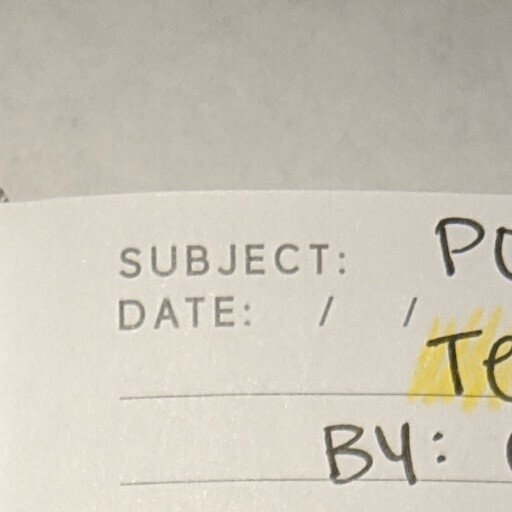 SUBJECT: PO
DATE: / /
Te
BY: